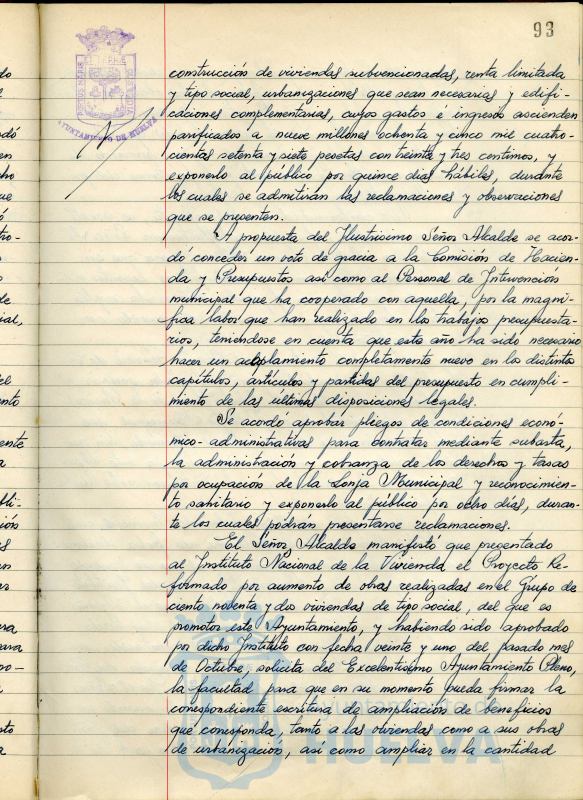 93
AYUNTAMIENTO DE HUELVA
construcción de viviendas subvencionadas, renta limitada
y tipo social, urbanizaciones que sean necesarias y edifi-
caciones complementarias, cuyos gastos é ingresos ascienden
parificados a nueve millones ochenta y cinco mil cuatro-
cientas setenta y siete pesetas con treinta y tres centimos, y
exponerlo al público por quince dias hábiles, durante
los cuales se admitirán las reclamaciones y observaciones
que se presenten.
A propuesta del Ilustrisimo Señor Alcalde se acor-
dó conceder un voto de gracia a la Comisión de Hacien-
da y Presupuestos asi como al Personal de Intervención
municipal que ha cooperado con aquella, por la magní-
fica labor que han realizado en los trabajos presupuesta-
rios, teniéndose en cuenta que este año ha sido necesario
hacer un acoplamiento completamente nuevo en los distintos
capítulos, artículos y partidas del presupuesto en cumpli-
miento de las ultimas disposiciones legales.
Se acordó aprobar pliegos de condiciones econó-
mico-administrativas para contratar mediante subasta,
la administración y cobranza de los derechos y tasas
por ocupación de la Lonja Municipal y reconocimien-
to sanitario y exponerlo al público por ocho días, duran-
te los cuales podrán presentarse reclamaciones.
El Señor Alcalde manifestó que presentado
al Instituto Nacional de la Vivienda el Proyecto Re-
formado por aumento de obras realizadas en el Grupo de
ciento noventa y dos viviendas de tipo social, del que es
promotor este Ayuntamiento, y habiendo sido aprobado
por dicho Instituto con fecha veinte y uno del pasado mes
de Octubre, solicita del Excelentisimo Ayuntamiento Pleno,
la facultad para que en su momento pueda firmar la
correspondiente escritura de ampliación de beneficios
que corresponda, tanto a las viviendas como a sus obras
de urbanización, asi como ampliar en la cantidad
HUELVA